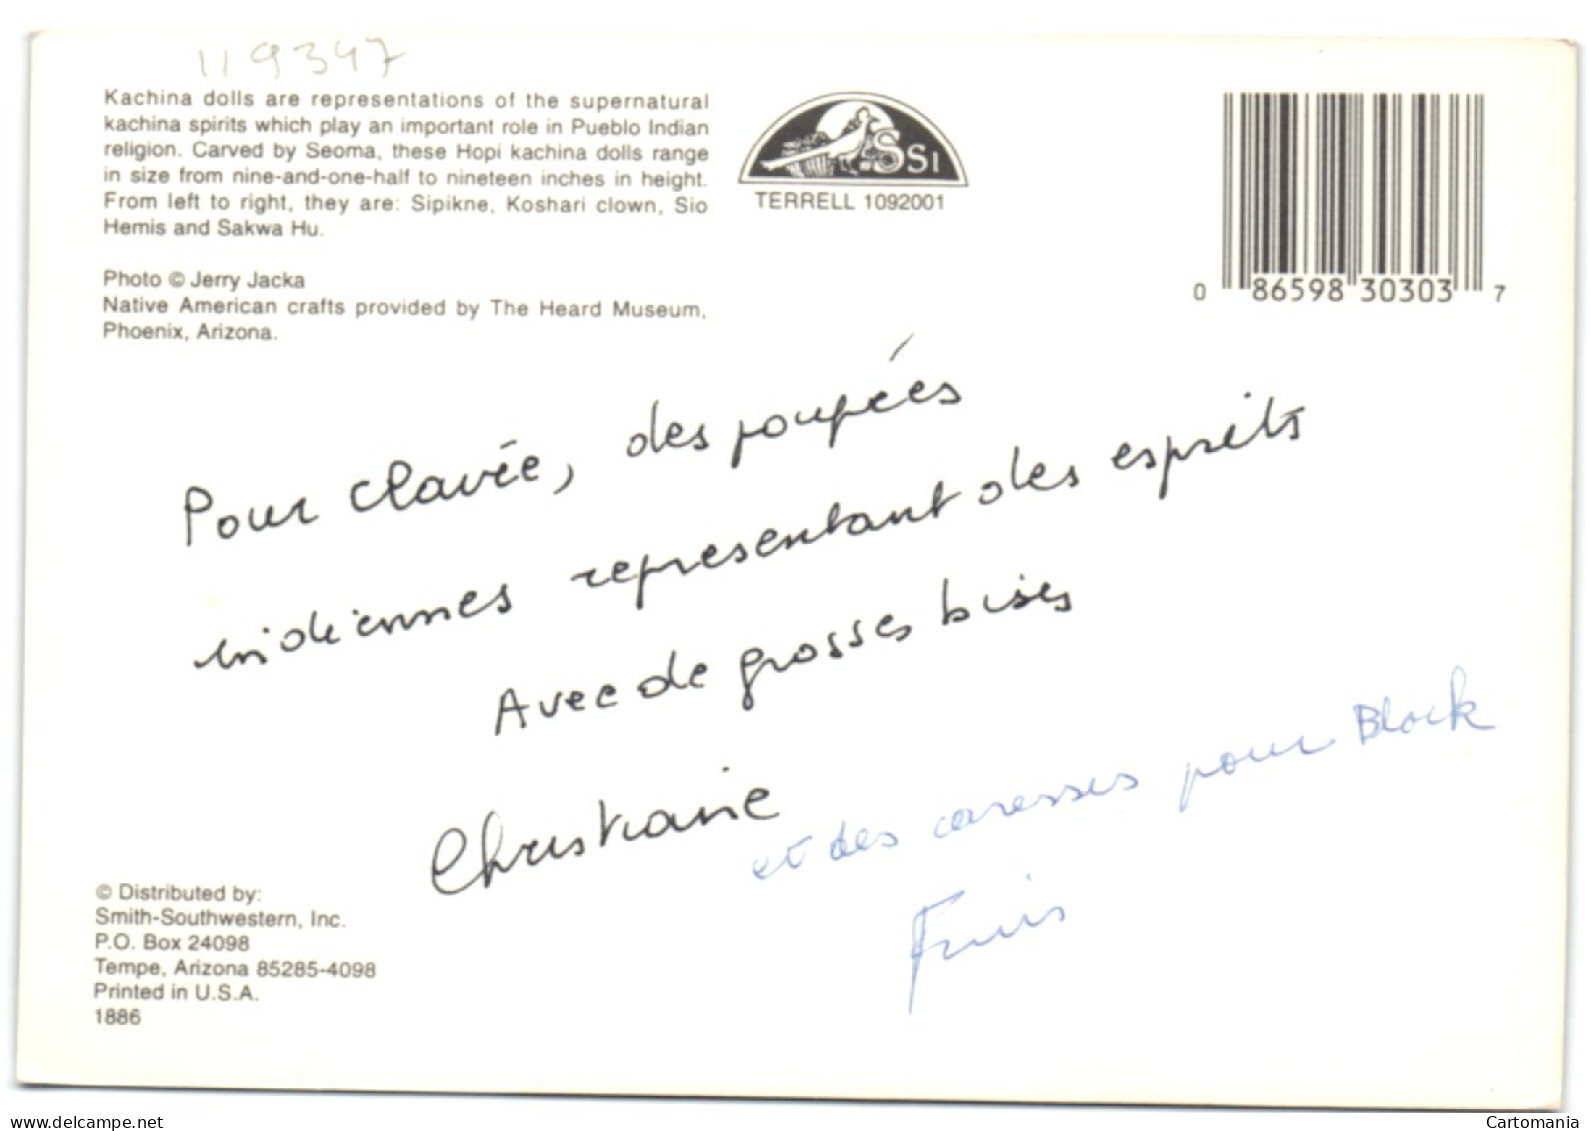 119347
Kachina dolls are representations of the supernatural
kachina spirits which play an important role in Pueblo Indian
religion. Carved by Seoma, these Hopi kachina dolls range
in size from nine-and-one-half to nineteen inches in height.
From left to right, they are: Sipikne, Koshari clown, Sio
Hemis and Sakwa Hu.
Photo © Jerry Jacka
Native American crafts provided by The Heard Museum,
Phoenix, Arizona.
SSI
TERRELL 1092001
0 86598 30303 7
Pour Clavée, des poupées
indiennes representant des esprits
Avec de grosses bises
Christiane
et des caresses pour Black
© Distributed by:
Smith-Southwestern, Inc.
P.O. Box 24098
Tempe, Arizona 85285-4098
Printed in U.S.A.
1886
http://www.delcampe.net
Cartomania